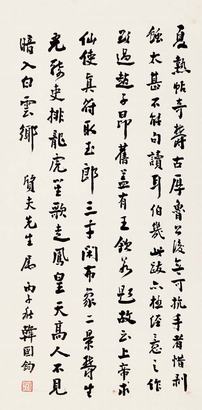 夏熱帖奇古厚魯公後無可抗手者惜剥
蝕太甚不能句讀耳伯幾此跋六極經意之作
殆過趙子昂舊蓋有王欽若題故云上帝求
仙使真符取玉郎三字閑布象二景
无散史排龍虎笙歌走鳳皇天高人不見
暗入白雲鄉 質夫先生属 丙子秋韓國鈞